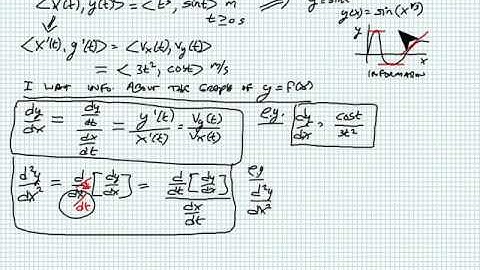 <x(t), y(t)> = <t³, sint> m
t ≥ 0 s
y = sin
y(x) = sin(x^(1/3))
y
x
INFORMATION
<x'(t), y'(t)> = <Vx(t), Vy(t)>
= <3t², cost> m/s
I WANT INFO ABOUT THE GRAPH OF y = f(x)
dy/dx = (dy/dt)/(dx/dt) = y'(t)/x'(t) = Vy(t)/Vx(t)
e.g. dy/dx = cost/3t²
d²y/dx² = d/dx [dy/dx] = (d/dt [dy/dx])/(dx/dt)
dt
eg d²y/dx²